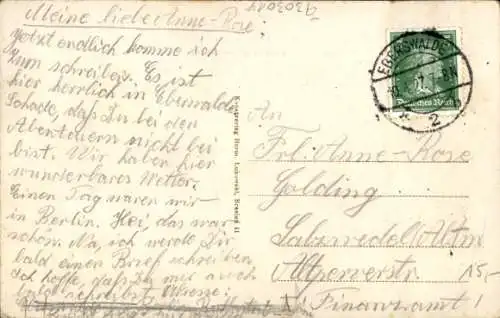 Meine liebe Anne-Rose!
Jetzt endlich komme ich
zum schreiben. Es ist
hier herrlich in Eberswalde
Schade, daß Du bei den
Abenteuern nicht bei
bist. Wir haben hier
wunderbares Wetter.
Einen Tag waren wir
in Berlin. Hei, das war
schön. Na, ich werde Dir
bald einen Brief schreiben
Ich hoffe, daß Du mir auch
bald schreibst
EBERSWALDE
2
Deutsches Reich
An
Frl. Anne-Rose
Golding
Salzwedel Altm
Altperverstr.
Finanzamt!
15,-